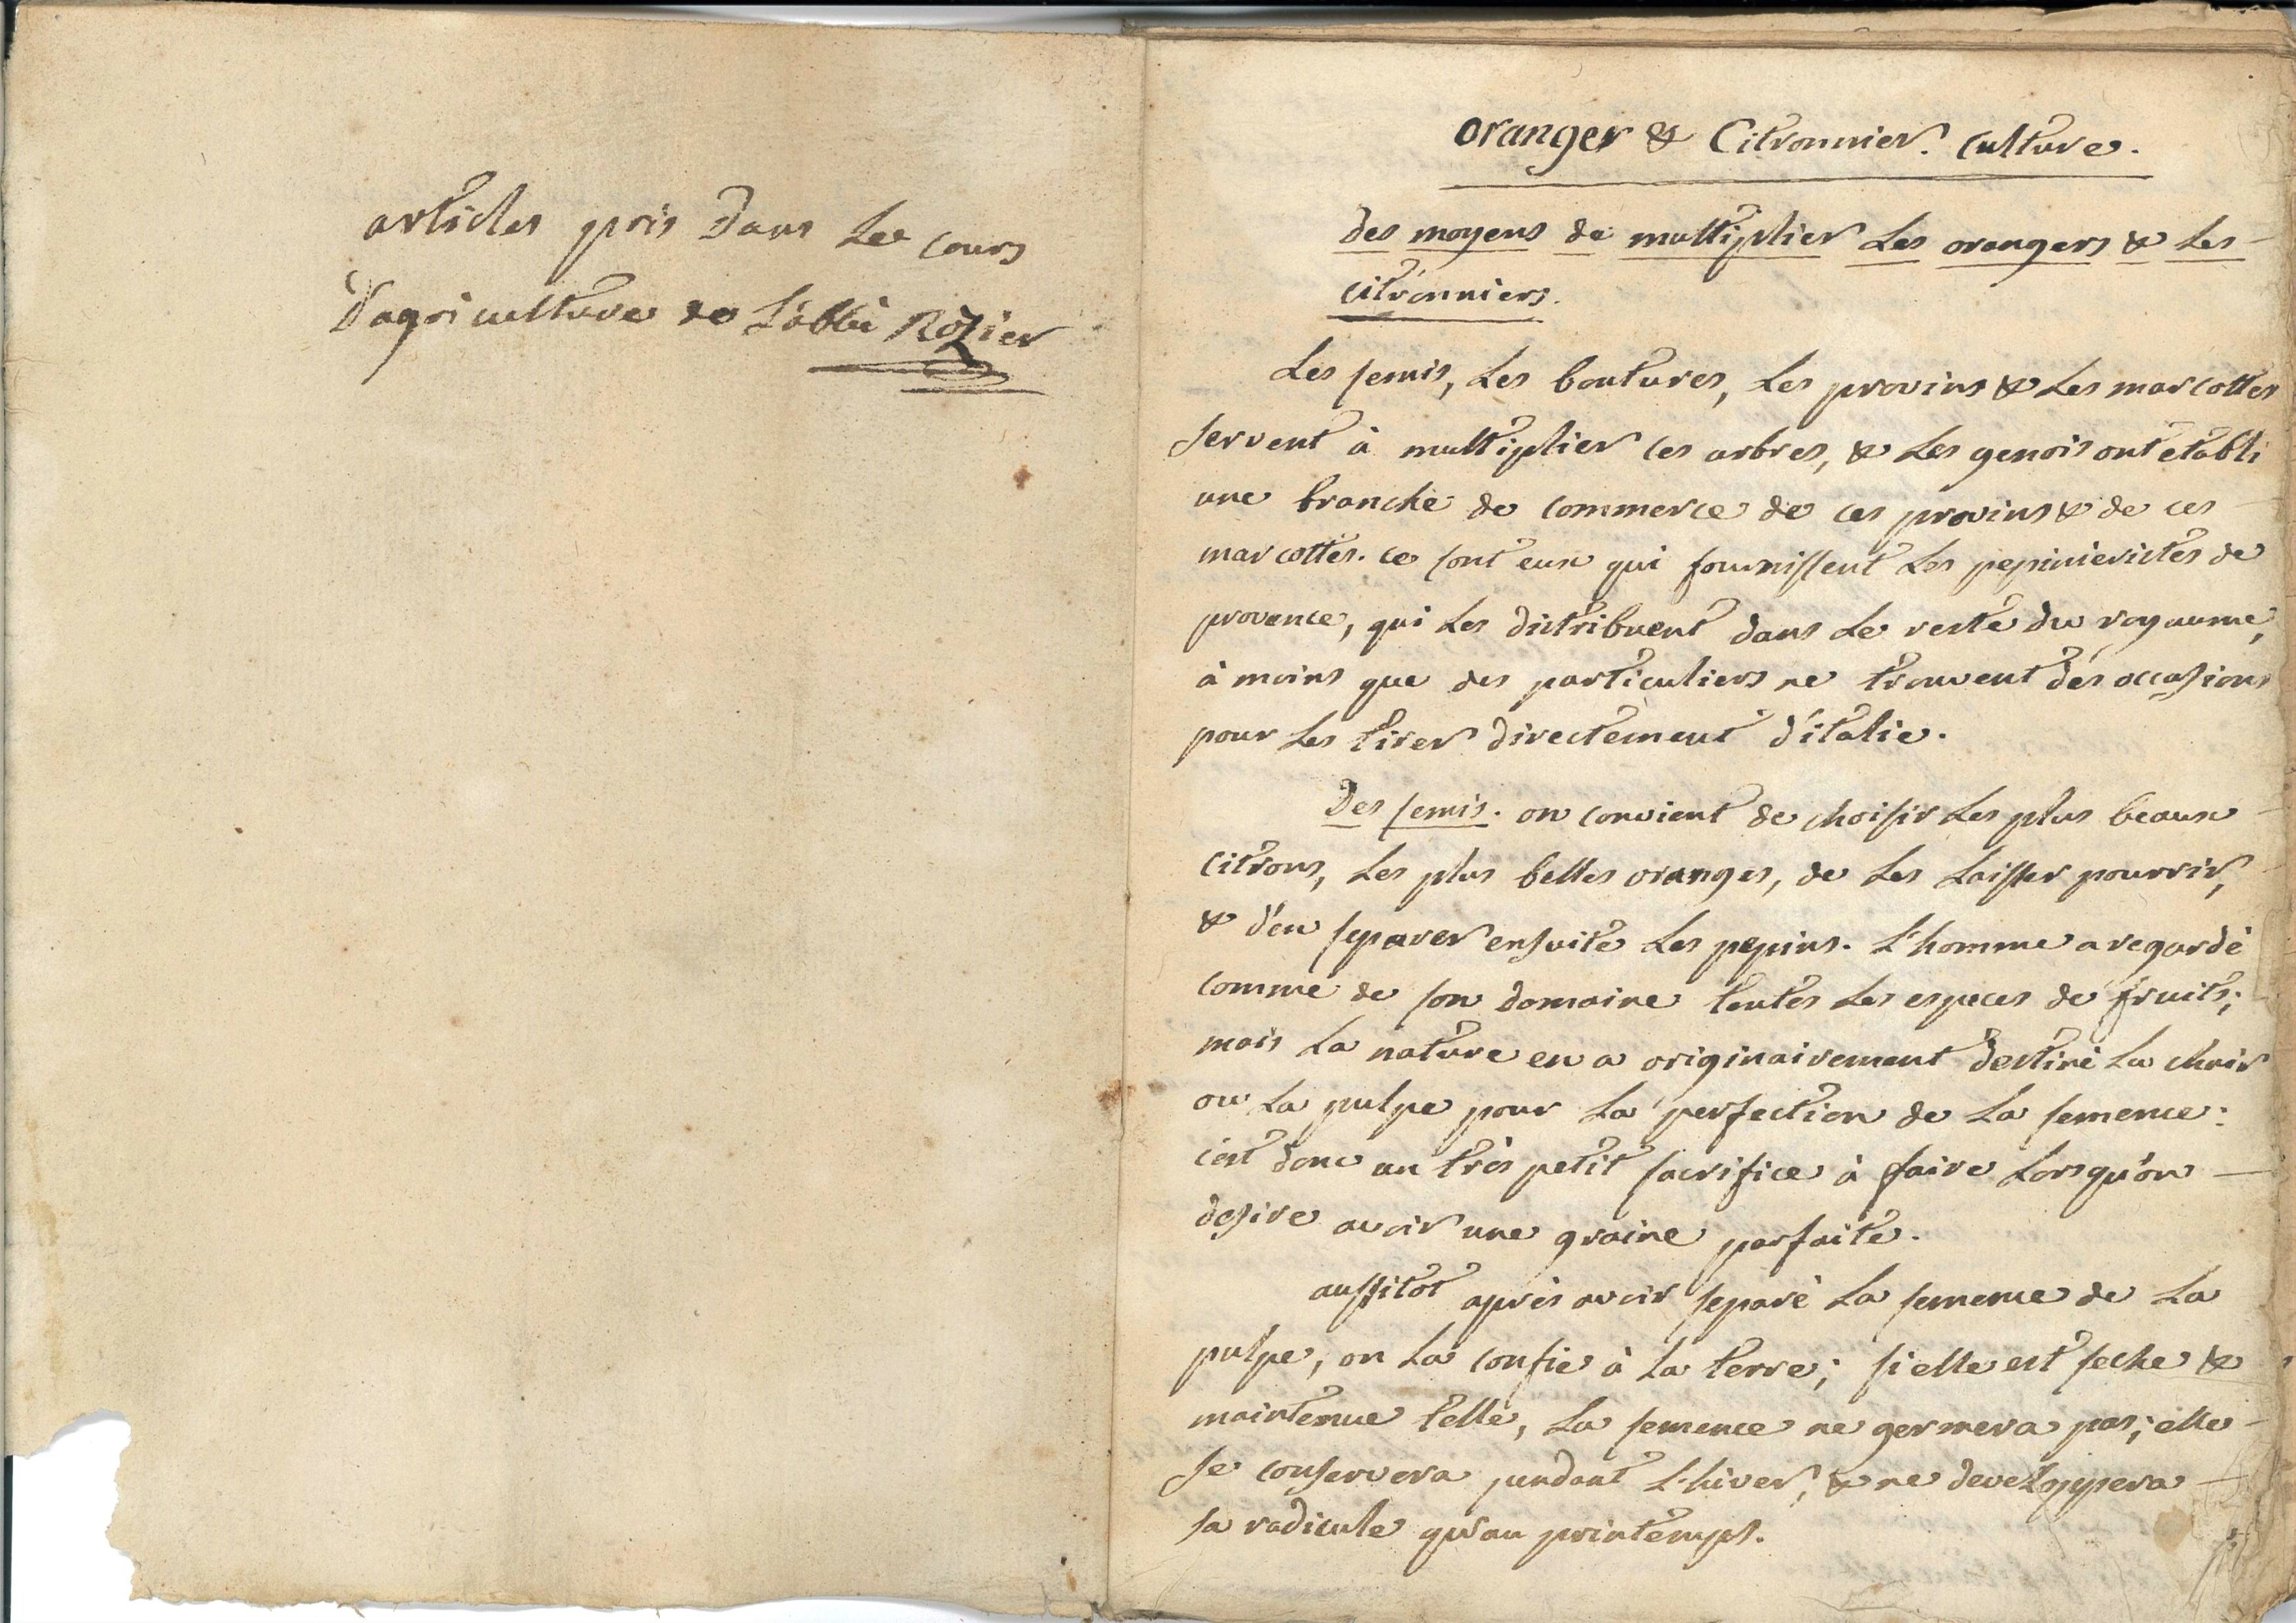 articles pris dans Le cours
d'agriculture de L'abbé Rozier
oranger & Citronnier. culture.
des moyens de multiplier Les orangers & Les
citronniers.
Les semis, Les boutures, Les provins & Les marcottes
servent à multiplier ces arbres, & Les genois ont etabli
une branche de commerce de ces provins & de ces
marcottes. ce sont eux qui fournissent Les pepinieristes de
provence, qui Les distribuent dans Le reste du royaume,
à moins que des particuliers ne trouvent des occasions
pour Les tirer directement d'italie.
Des semis. on convient de choisir Les plus beaux
citrons, Les plus belles oranges, de Les Laisser pourrir,
& d'en separer ensuite Les pepins. L'homme a regardé
comme de son domaine toutes Les especes de fruits;
mais La nature en a originairement destiné La chair
ou La pulpe pour La perfection de La semence:
c'est donc un très petit sacrifice à faire Lorsqu'on
desire avoir une graine parfaite.
aussitôt après avoir separé La semence de La
pulpe, on La confie à La terre; si elle est seche &
maintenue telle, La semence ne germera pas; elle
se conservera pendant L'hiver, & ne developpera
sa radicule qu'au printemps.